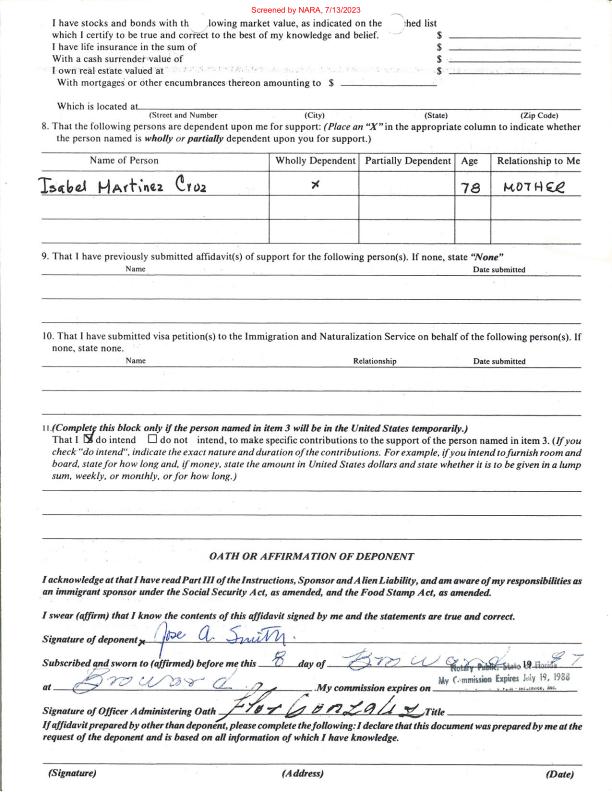 Screened by NARA, 7/13/2023
I have stocks and bonds with th lowing market value, as indicated on the hed list
which I certify to be true and correct to the best of my knowledge and belief. $
I have life insurance in the sum of $
With a cash surrender value of $
I own real estate valued at $
With mortgages or other encumbrances thereon amounting to $
Which is located at
(Street and Number) (City) (State) (Zip Code)
8. That the following persons are dependent upon me for support: (Place an "X" in the appropriate column to indicate whether
the person named is wholly or partially dependent upon you for support.)
Name of Person Wholly Dependent Partially Dependent Age Relationship to Me
Isabel Martinez Cruz x 78 MOTHER
9. That I have previously submitted affidavit(s) of support for the following person(s). If none, state "None"
Name Date submitted
10. That I have submitted visa petition(s) to the Immigration and Naturalization Service on behalf of the following person(s). If
none, state none.
Name Relationship Date submitted
11.(Complete this block only if the person named in item 3 will be in the United States temporarily.)
That I ☒ do intend ☐ do not intend, to make specific contributions to the support of the person named in item 3. (If you
check "do intend", indicate the exact nature and duration of the contributions. For example, if you intend to furnish room and
board, state for how long and, if money, state the amount in United States dollars and state whether it is to be given in a lump
sum, weekly, or monthly, or for how long.)
OATH OR AFFIRMATION OF DEPONENT
I acknowledge at that I have read Part III of the Instructions, Sponsor and Alien Liability, and am aware of my responsibilities as
an immigrant sponsor under the Social Security Act, as amended, and the Food Stamp Act, as amended.
I swear (affirm) that I know the contents of this affidavit signed by me and the statements are true and correct.
Signature of deponent x Jose A. Smith.
Subscribed and sworn to (affirmed) before me this 8 day of Broward 19 87
Notary Public, State Florida
at Broward My commission expires on My Commission Expires July 19, 1988
Signature of Officer Administering Oath Flor Gonzalez Title
If affidavit prepared by other than deponent, please complete the following: I declare that this document was prepared by me at the
request of the deponent and is based on all information of which I have knowledge.
(Signature) (Address) (Date)